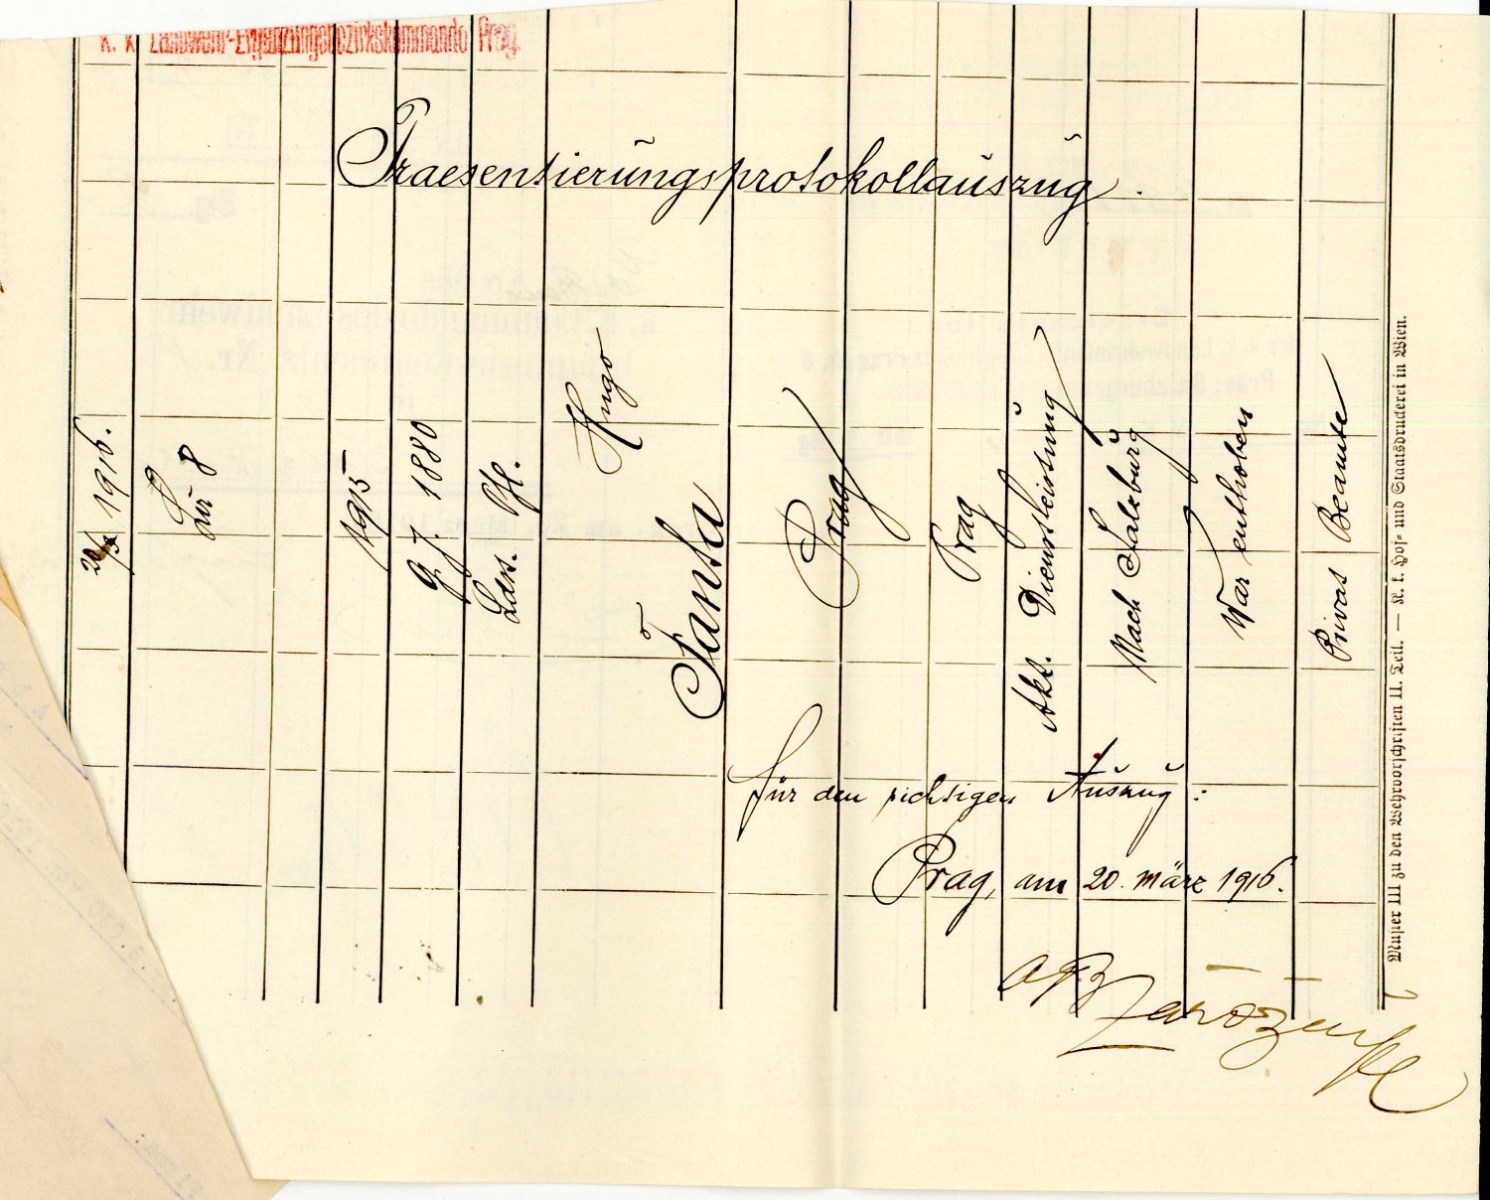 K. k. Landwehr-Ergänzungsbezirkskommando Prag.
Praesentierungsprotokollauszug.
20/3 1916.
Lir 8
1915
g. J. 1880
Ldst. Pfl.
Hugo
Fanta
Prag
Prag
Akt. Dienstleistung
Nach Salzburg
War enthoben
Privat Beamte
Für den richtigen Auszug:
Prag, am 20. März 1916.
Muster III zu den Wehrvorschriften II. Teil. — K. k. Hof- und Staatsdruckerei in Wien.